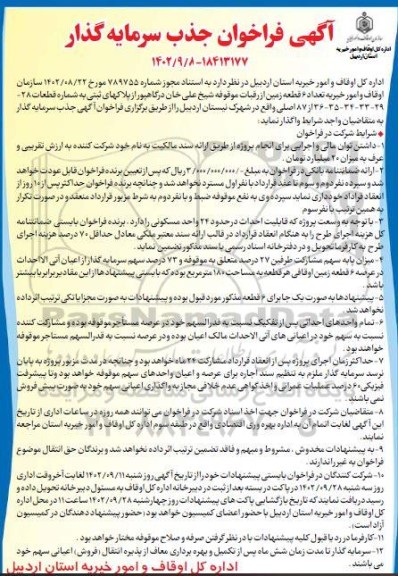 اداره کل اوقاف و امور خیریه
استان اردبیل
آگهی فراخوان جذب سرمایه گذار
۱۴۰۲/۹/۸-۱۸۴۱۳۱۷۷
اداره کل اوقاف و امور خیریه استان اردبیل در نظر دارد به استناد مجوز شماره ۷۸۹۷۵۵ مورخ ۱۴۰۲/۰۸/۲۲ سازمان
اوقاف و امور خیریه تعداد ۶ قطعه زمین از رقبات موقوفه شیخ علی خان درگاهپور از پلاکهای ثبتی به شماره قطعات ۲۸-
۲۹-۳۳-۳۴-۳۵-۳۶ از ۸۷ اصلی واقع در شهرک نیستان اردبیل را از طریق برگزاری فراخوان آگهی جذب سرمایه گذار به
متقاضیان واجد شرایط واگذار نماید:
شرایط شرکت در فراخوان
۱- داشتن توان مالی و اجرایی برای انجام پروژه از طریق ارائه سند مالکیت به نام خود شرکت کننده به ارزش تقریبی و
عرف به میزان ۲۰ میلیارد تومان.
۲- ارائه ضمانتنامه بانکی در فراخوان به مبلغ ۳/۰۰۰/۰۰۰/۰۰۰ ریال که پس از تعیین برنده فراخوان قابل عودت خواهد
شد و سپرده نفر دوم و سوم تا عقد قرارداد با نفر اول مسترد نخواهد شد و چنانچه برنده فراخوان حداکثر پس از ۱۰ روز از
انعقاد قرارداد خودداری نماید سپرده وی به نفع موقوفه ضبط و با نفر دوم به شرط مزبور قرارداد منعقد و در صورت تکرار
به همین ترتیب با نفر سوم
۳- با توجه به وسعت پروژه که قابلیت احداث در حدود ۲۴ واحد مسکونی را دارد. برنده فراخوان بایستی ضمانتنامه
کل هزینه اجرای طرح را به هنگام انعقاد قرارداد در قالب ارائه سند معتبر ملکی معادل حداقل ۷۰ درصد هزینه اجرای
طرح به کارفرما تحویل و در دفترخانه اسناد رسمی با سند مذکور تضمین نماید.
۴- میزان پایه سهم مشارکت طرفین ۲۷ درصد متعلق به موقوفه و ۷۳ درصد سهم سرمایه گذار از اعیان آتی الاحداث
در عرصه ۶ قطعه زمین اوقافی هر قطعه به مساحت ۱۸۰ متر مربع بوده که بایستی پیشنهادها از این مقادیر برابر یا بیشتر
باشد.
۵- پیشنهادها به صورت یک جا برای ۶ قطعه مذکور مورد قبول بوده و پیشنهادات به صورت مجزا یا تکی ترتیب اثر داده
نخواهد شد.
۶- تمام واحدهای احداثی پس از تفکیک نسبت به قدرالسهم خود در عرصه مستاجر موقوفه بوده و مشارکت کننده
نسبت به سهم خود در اعیانی های آتی الاحداث مالک اعیان بوده و در عرصه نسبت به قدرالسهم مستاجر موقوفه
خواهند بود.
۷- حداکثر زمان اجرای پروژه پس از انعقاد قرارداد مشارکت ۲۴ ماه خواهد بود و چنانچه در مدت مزبور پروژه به پایان
نرسد سرمایه گذار ملزم به تنظیم سند اجاره برای عرصه و اعیان واحدهای سهم موقوفه خواهد بود و تا پیشرفت
فیزیکی ۶۰ درصد عملیات عمرانی و اخذ گواهی عدم خلافی مجاز به واگذاری اعیانی سهم خود به صورت پیش فروش
نمی باشند.
۸- متقاضیان شرکت در فراخوان جهت اخذ اسناد شرکت در فراخوان می توانند همه روزه در ساعات اداری از تاریخ
این آگهی لغایت اتمام آن به اداره بهره وری اقتصادی واقع در طبقه سوم اداره کل اوقاف و امور خیریه استان مراجعه
نمایند.
۹- به پیشنهادات مخدوش، مشروط و مبهم و فاقد تضمین ترتیب اثر داده نخواهد شد و برندگان حق انتقال موضوع
فراخوان به غیر را ندارند.
۱۰- شرکت کنندگان در فراخوان بایستی پیشنهادات خود را از تاریخ آگهی روز شنبه ۱۴۰۲/۰۹/۱۱ لغایت آخر وقت اداری
روز سه شنبه ۱۴۰۲/۰۹/۲۸ در پاکت در بسته بعد از ثبت در دبیرخانه اداره کل اوقاف به مسئول دبیرخانه تحویل داده و
رسید دریافت نمایند که تاریخ بازگشایی پاکت های پیشنهادات روز چهارشنبه ۱۴۰۲/۰۹/۲۸ ساعت ۱۱ در محل اداره
کل اوقاف و امور خیریه استان اردبیل با حضور اعضای کمیسیون خواهد بود؛ حضور پیشنهاد دهندگان در کمیسیون
آزاد است.
۱۱- کارفرما در رد یا قبول کلیه پیشنهادات با در نظر گرفتن صرفه و صلاح موقوفه مختار خواهد بود.
۱۲- سرمایه گذار تا مدت زمان شش ماه پس از تکمیل و بهره برداری معاف از پذیره انتقال (فروش) اعیانی سهم خود
می باشد.
اداره کل اوقاف و امور خیریه استان اردبیل